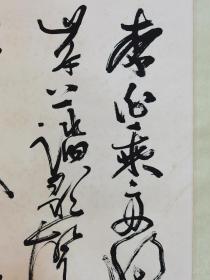 李白乘舟
岸上踏歌聲